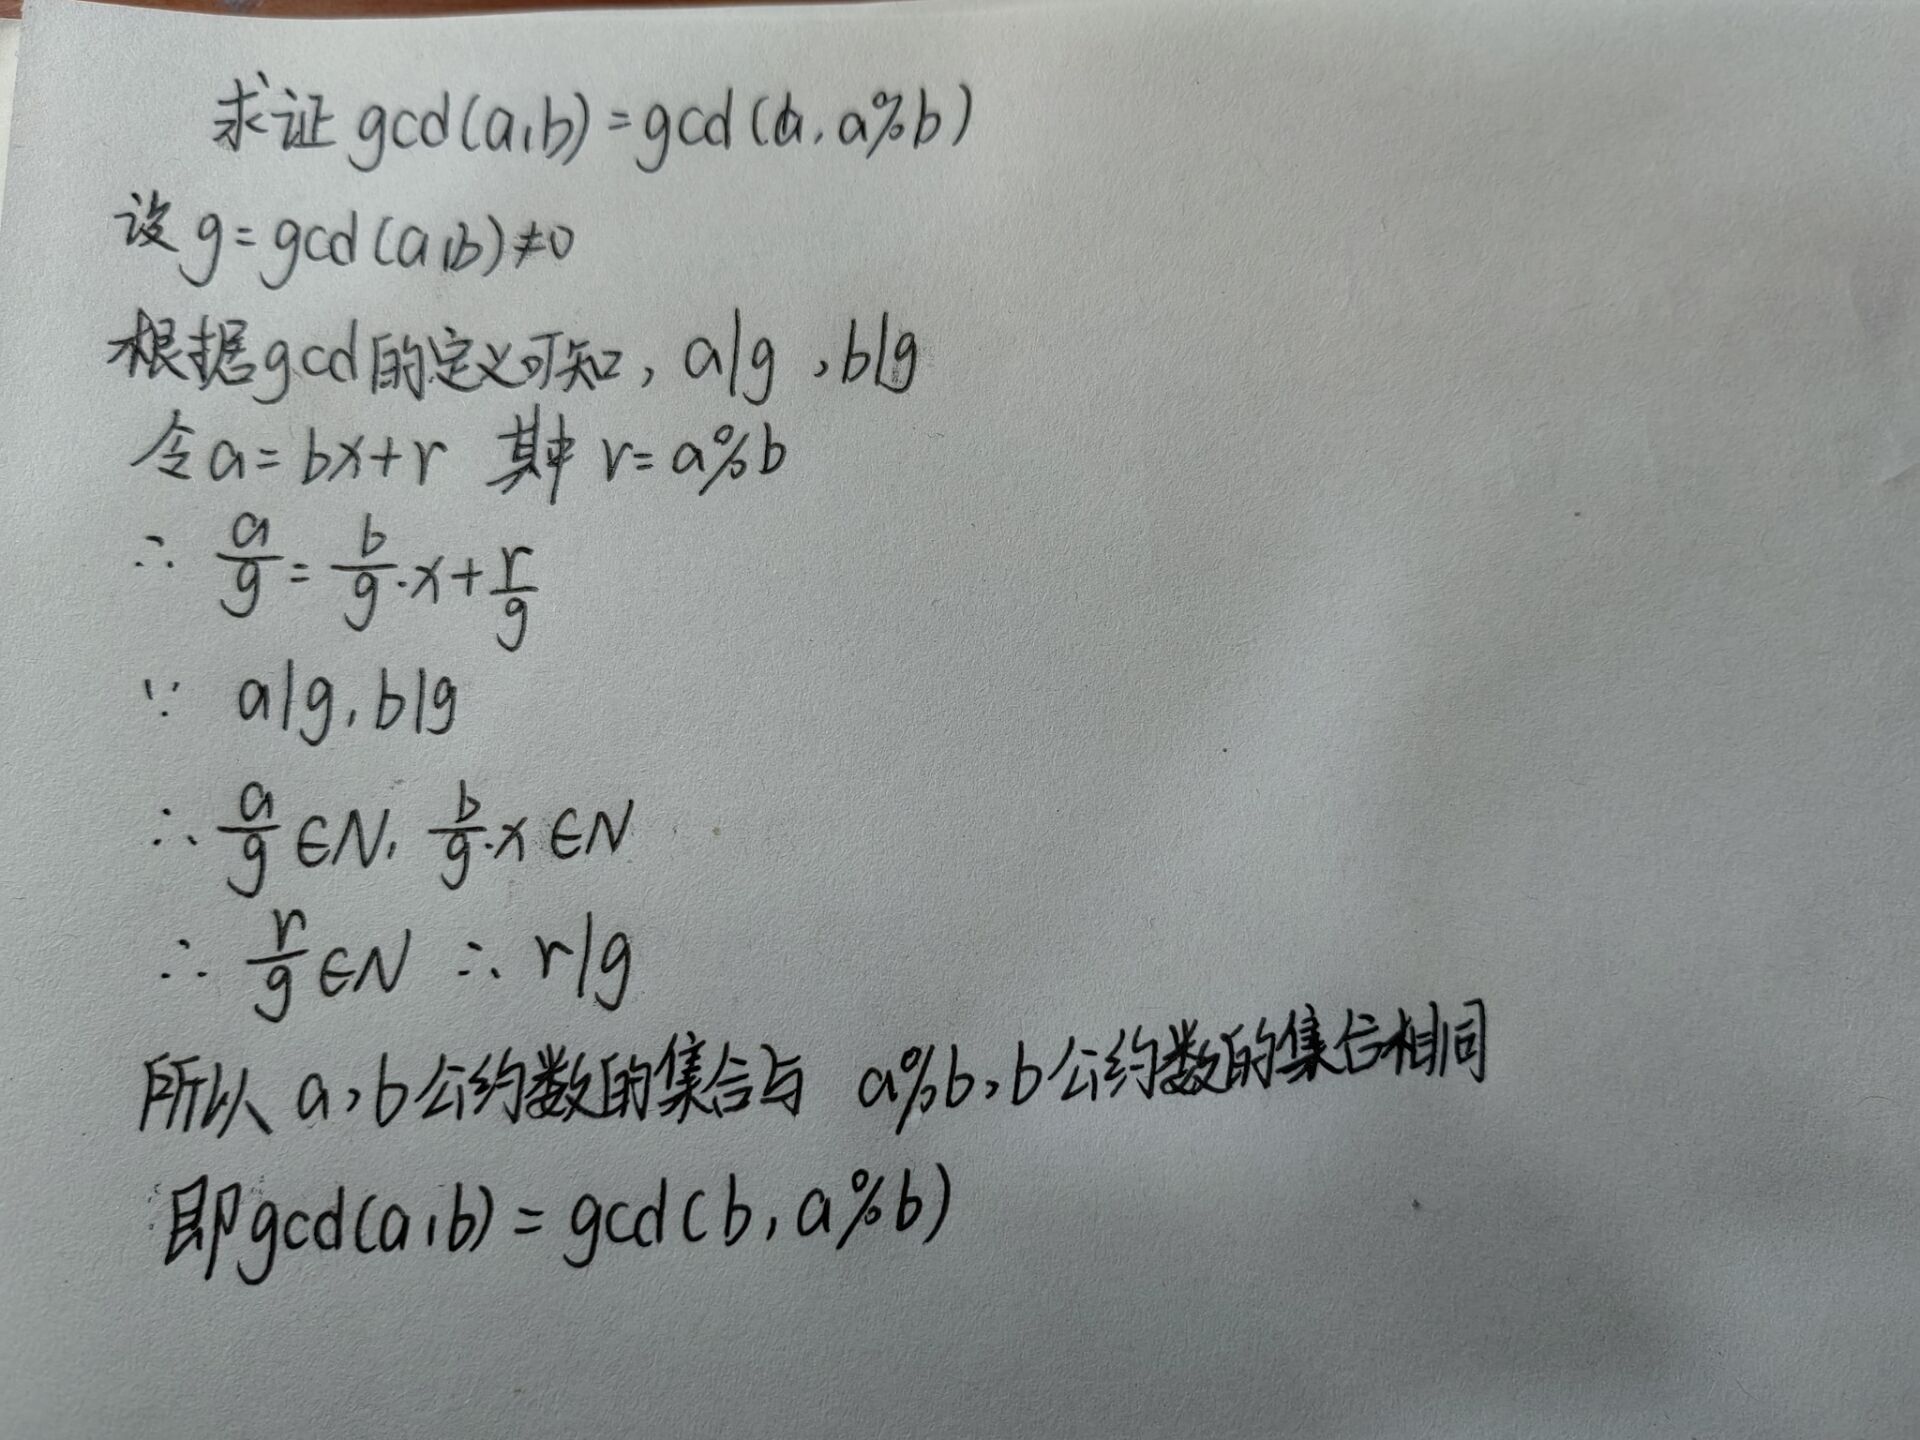 求证 gcd(a,b)=gcd(b, a%b)
设 g=gcd(a,b)≠0
根据gcd的定义可知, a|g ,b|g
令a=bx+r 其中 r=a%b
∴ a/g = b/g·x + r/g
∵ a|g, b|g
∴ a/g ∈N, b/g·x ∈N
∴ r/g ∈N ∴ r|g
所以 a,b公约数的集合与 a%b,b公约数的集合相同
即gcd(a,b)=gcd(b, a%b)